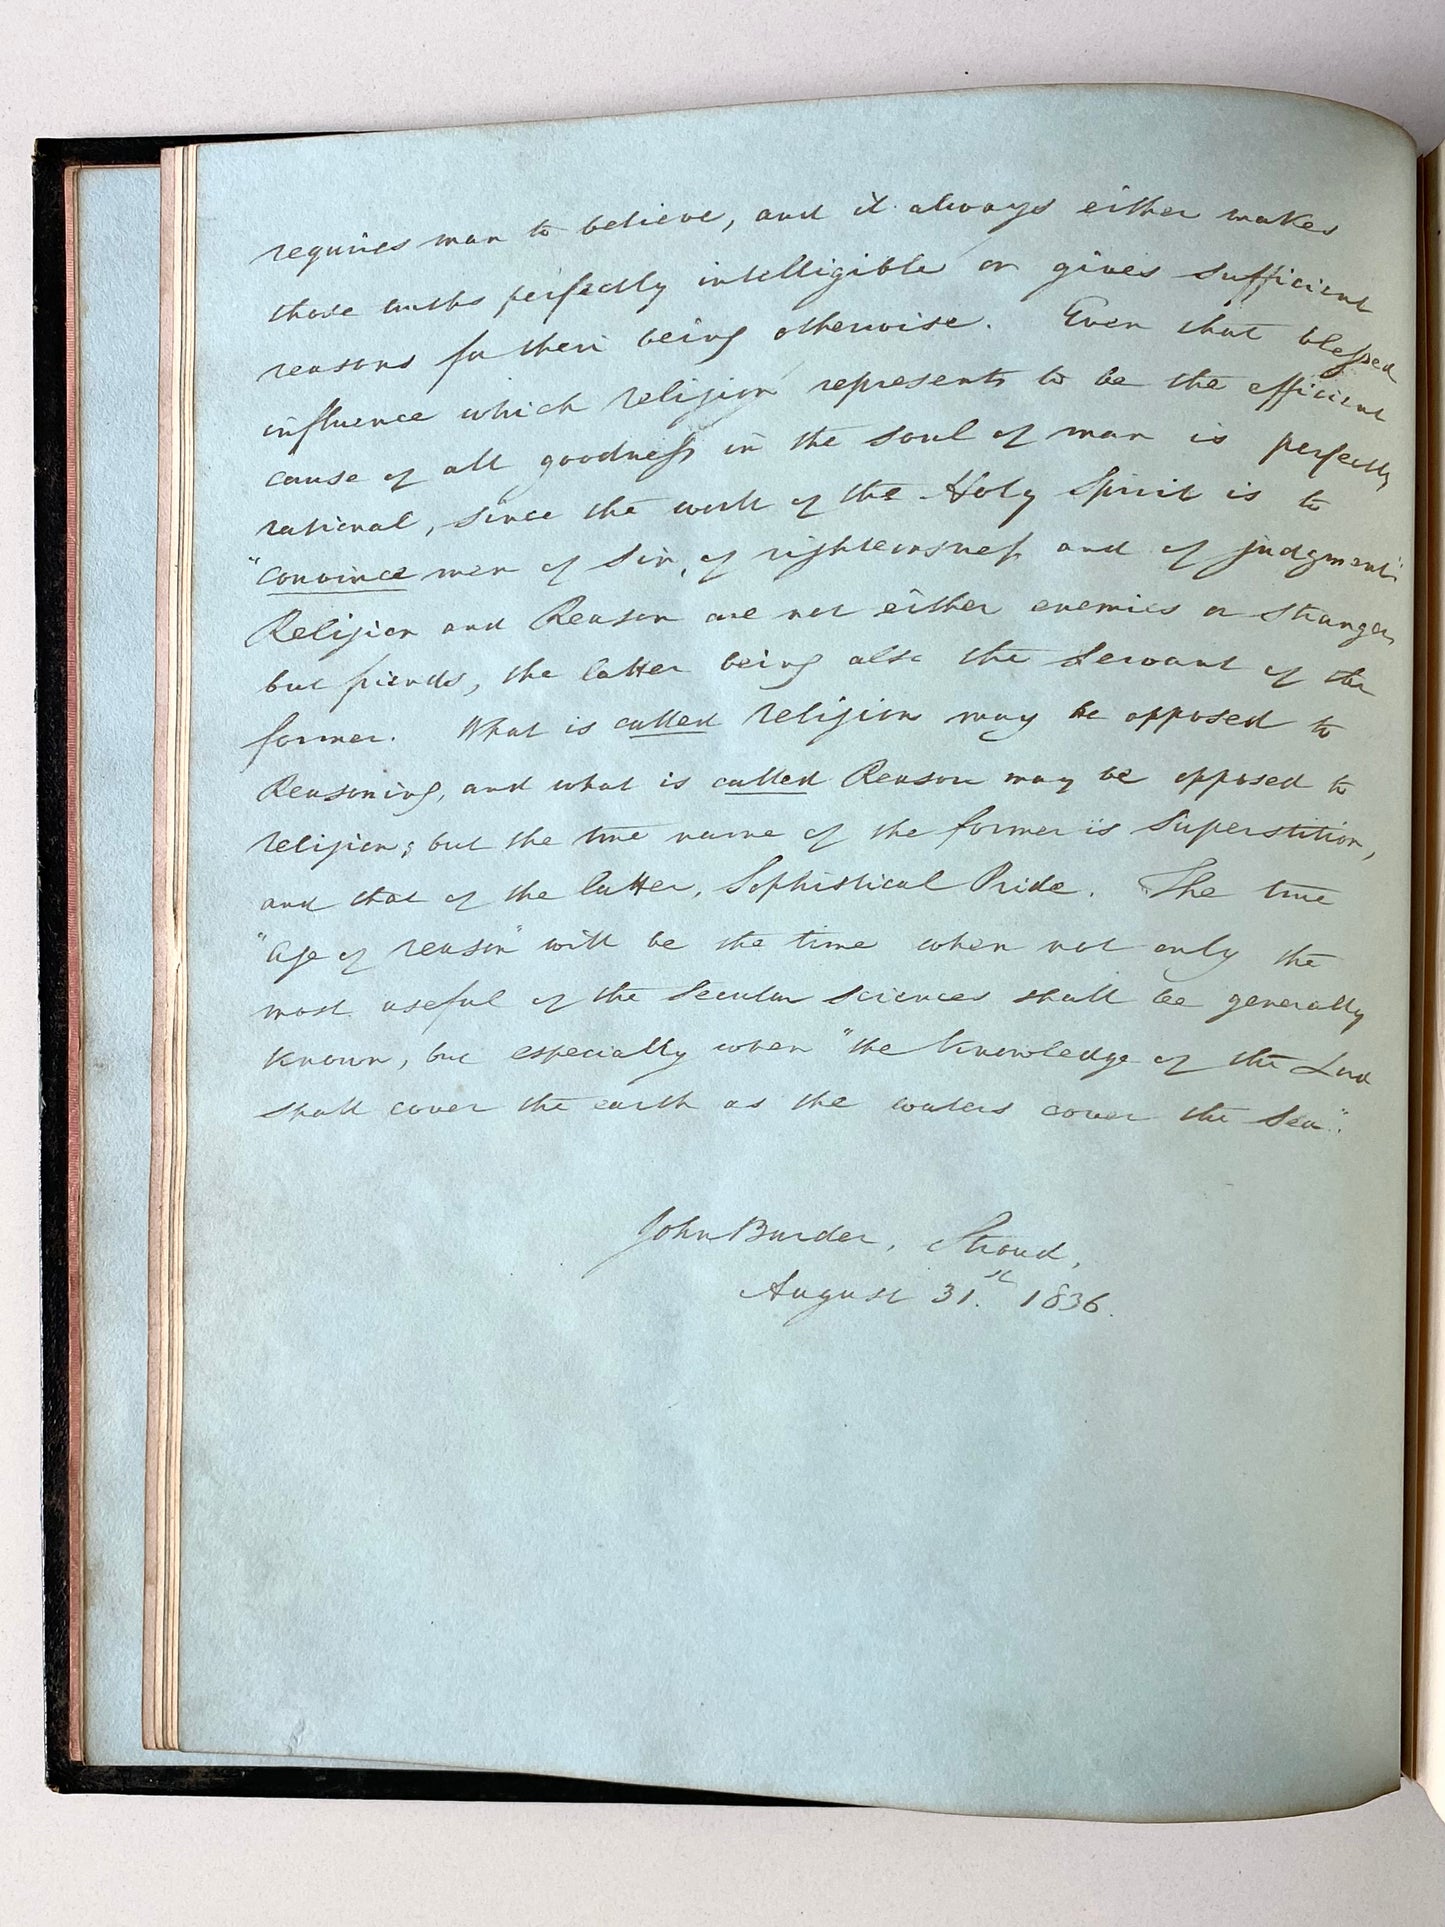 requires man to believe, and it always either makes
those truths perfectly intelligible or gives sufficient
reasons for their being otherwise. Even that blessed
influence which religion represents to be the efficient
cause of all goodness in the soul of man is perfectly
rational, since the work of the Holy Spirit is to
"convince men of sin, of righteousness and of judgment".
Religion and Reason are not either enemies or strangers
but friends, the latter being also the servant of the
former. What is called religion may be opposed to
Reasoning, and what is called Reason may be opposed to
religion; but the true name of the former is Superstition,
and that of the latter, Sophistical Pride. The true
"age of reason" will be the time when not only the
most useful of the secular sciences shall be generally
known, but especially when "the knowledge of the Lord
shall cover the earth as the waters cover the sea".
John Burder, Stroud,
August 31.st 1836.